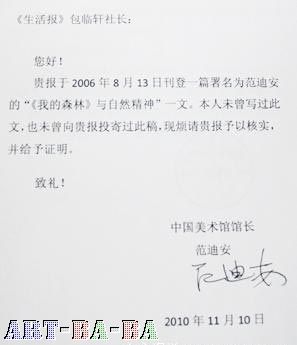 《生活报》包临轩社长：
您好！
贵报于 2006 年 8 月 13 日刊登一篇署名为范迪安
的“《我的森林》与自然精神”一文。本人未曾写过此
文，也未曾向贵报投寄过此稿，现烦请贵报予以核实，
并给予证明。
致礼！
中国美术馆馆长
范迪安
范迪安
2010 年 11 月 10 日
ART-BA-BA